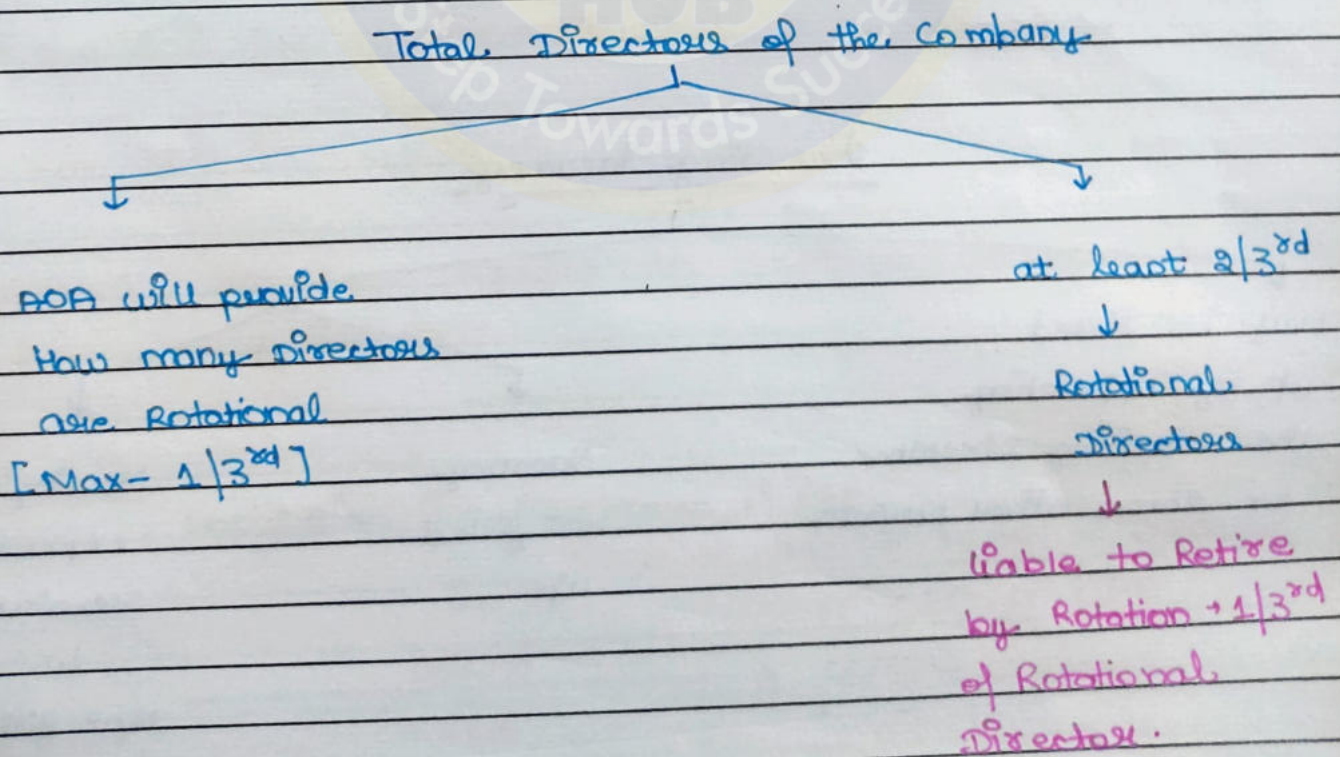 HUB
Step Towards Success
Total Directors of the Company
AOA will provide
How many Directors
are Rotational
[Max- 1/3rd]
at least 2/3rd
Rotational
Directors
liable to Retire
by Rotation → 1/3rd
of Rotational
Director.